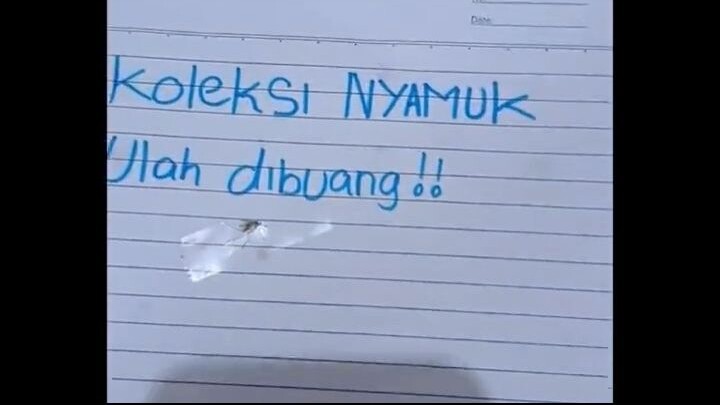 Date:
KoleKSI NYAMUK
Ulah dibuang!!